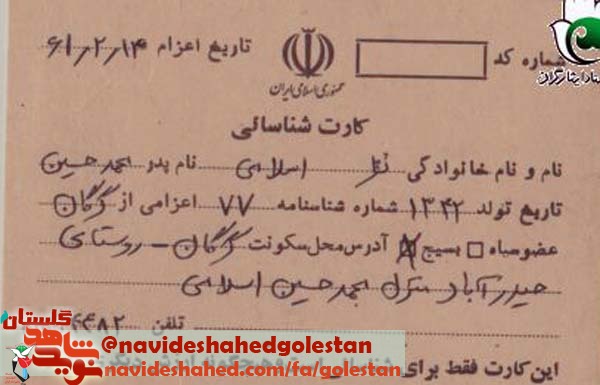 شماره کد
تاریخ اعزام ۶۱٫۲٫۱۴
جمهوری اسلامی ایران
کارت شناسائی
نام و نام خانوادگی اسلامی نام پدر محمدحسین
تاریخ تولد ۱۳۴۲ شماره شناسنامه ۷۷ اعزامی از گرگان
عضو سپاه □ بسیج ☒ آدرس محل سکونت گرگان - روستای
حیدرآباد منزل محمدحسین اسلامی
تلفن ۴۴۸۲
این کارت فقط برای
نوید شاهد گلستان
@navideshahedgolestan
navideshahed.com/fa/golestan